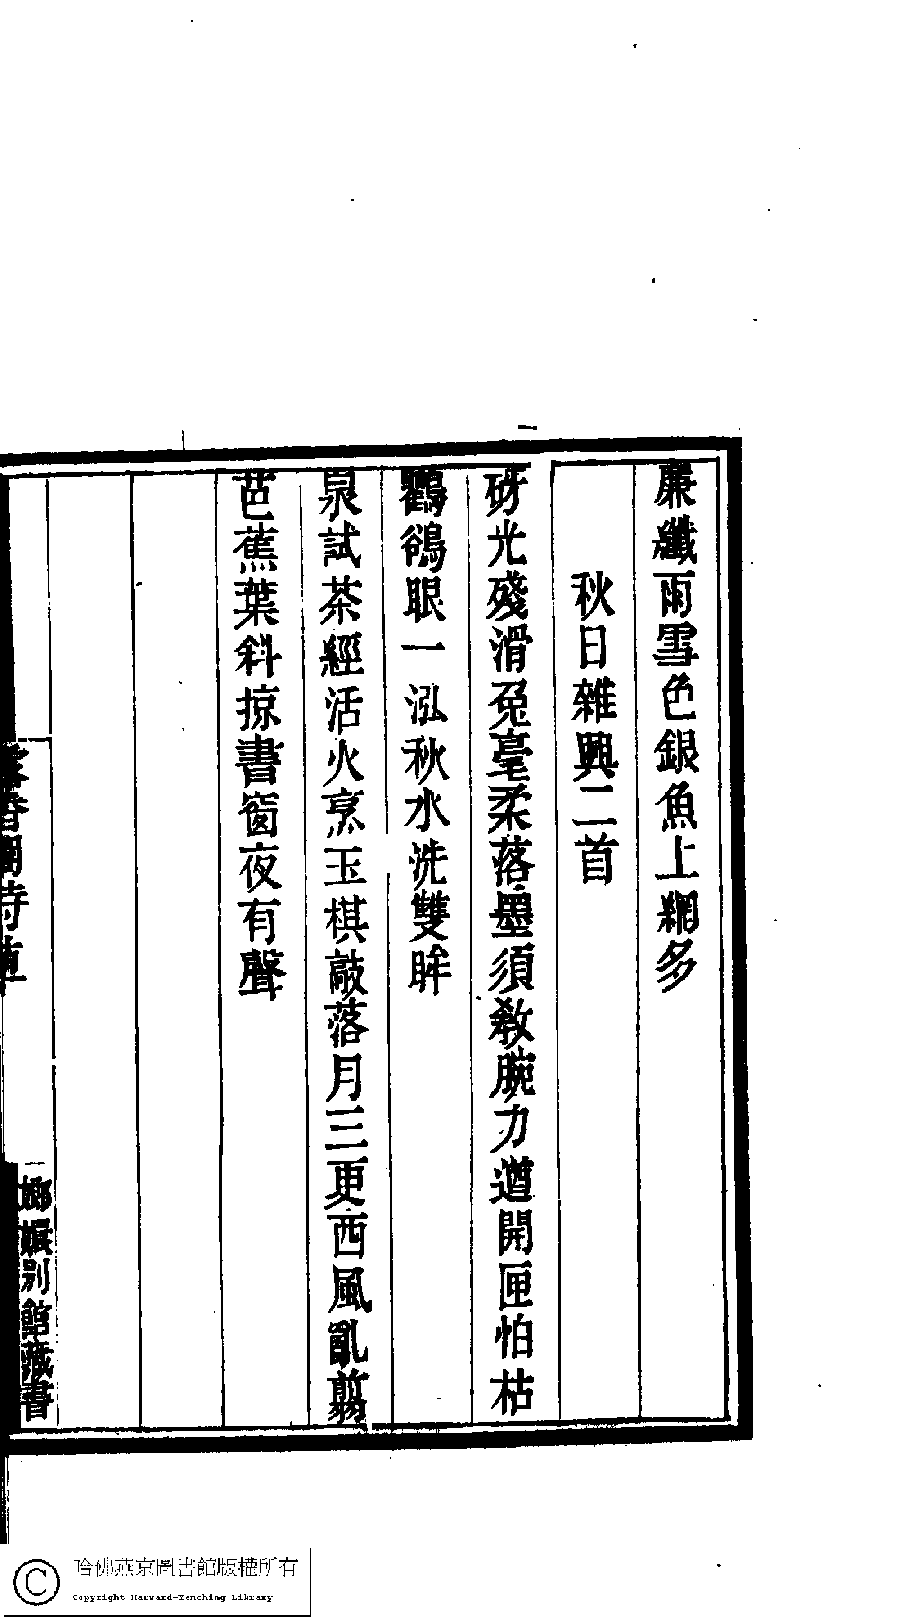 廉纖雨雪色銀魚上網多
秋日雜興二首
砑光殘滑兔毫柔落墨須教腕力遒開匣怕枯
鸜鵒眼一泓秋水洗雙眸
泉試茶經活火烹玉棋敲落月三更西風亂翦
芭蕉葉斜掠書窗夜有聲
香閣詩草
嫏嬛別館藏書
哈佛燕京圖書館版權所有
Copyright Harvard-Yenching Library